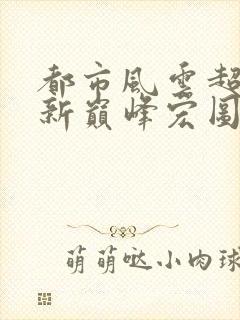 都市風雲超
新巔峰宏圖
萌萌哒小肉球